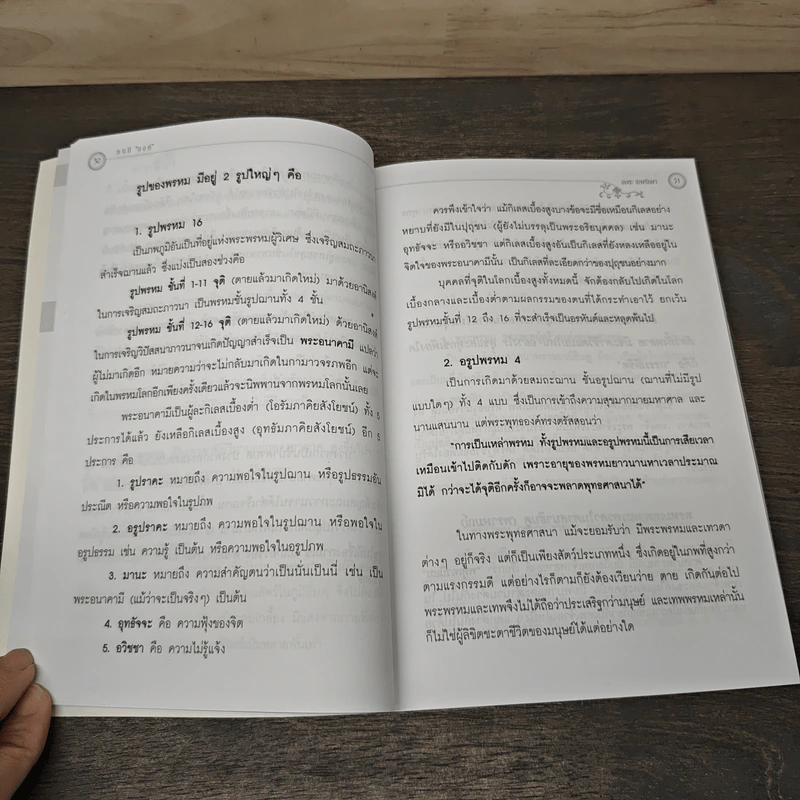 รูปของพรหม มีอยู่ 2 รูปใหญ่ๆ คือ
1. รูปพรหม 16
เป็นภพภูมิอันเป็นที่อยู่แห่งพระพรหมผู้วิเศษ ซึ่งเจริญสมถะภาวนา
สำเร็จฌานแล้ว ซึ่งแบ่งเป็นสองช่วงคือ
รูปพรหม ชั้นที่ 1-11 จุติ (ตายแล้วมาเกิดใหม่) มาด้วยอานิสงส์
ในการเจริญสมถะภาวนา เป็นพรหมชั้นรูปฌานทั้ง 4 ชั้น
รูปพรหม ชั้นที่ 12-16 จุติ (ตายแล้วมาเกิดใหม่) ด้วยอานิสงส์
ในการเจริญวิปัสสนาภาวนาจนเกิดปัญญาสำเร็จเป็น พระอนาคามี แปลว่า
ผู้ไม่มาเกิดอีก หมายความว่าจะไม่กลับมาเกิดในกามาวจรภพอีก แต่จะ
เกิดในพรหมโลกอีกเพียงครั้งเดียวแล้วจะนิพพานจากพรหมโลกนั้นเลย
พระอนาคามีเป็นผู้ละกิเลสเบื้องต่ำ (โอรัมภาคิยสังโยชน์) ทั้ง 5
ประการได้แล้ว ยังเหลือกิเลสเบื้องสูง (อุทธัมภาคิยสังโยชน์) อีก 5
ประการ คือ
1. รูปราคะ หมายถึง ความพอใจในรูปฌาน หรือรูปธรรมอัน
ประณีต หรือความพอใจในรูปภพ
2. อรูปราคะ หมายถึง ความพอใจในรูปฌาน หรือพอใจใน
อรูปธรรม เช่น ความรู้ เป็นต้น หรือความพอใจในอรูปภพ
3. มานะ หมายถึง ความสำคัญตนว่าเป็นนั่นเป็นนี่ เช่น เป็น
พระอนาคามี (แม้ว่าจะเป็นจริงๆ) เป็นต้น
4. อุทธัจจะ คือ ความฟุ้งของจิต
5. อวิชชา คือ ความไม่รู้แจ้ง
ควรพึงเข้าใจว่า แม้กิเลสเบื้องสูงบางข้อจะมีชื่อเหมือนกิเลสอย่าง
หยาบที่ยังมีในปุถุชน (ผู้ยังไม่บรรลุเป็นพระอริยบุคคล) เช่น มานะ
อุทธัจจะ หรืออวิชชา แต่กิเลสเบื้องสูงอันเป็นกิเลสที่ยังหลงเหลืออยู่ใน
จิตใจของพระอนาคามีนั้น เป็นกิเลสที่ละเอียดกว่าของปุถุชนอย่างมาก
บุคคลที่จุติในโลกเบื้องสูงทั้งหมดนี้ จักต้องกลับไปเกิดในโลก
เบื้องกลางและเบื้องต่ำตามผลกรรมของตนที่ได้กระทำเอาไว้ ยกเว้น
รูปพรหมชั้นที่ 12 ถึง 16 ที่จะสำเร็จเป็นอรหันต์และหลุดพ้นไป
2. อรูปพรหม 4
เป็นการเกิดมาด้วยสมถะฌาน ชั้นอรูปฌาน (ฌานที่ไม่มีรูป
แบบใดๆ) ทั้ง 4 แบบ ซึ่งเป็นการเข้าถึงความสุขมากมายมหาศาล และ
นานแสนนาน แต่พระพุทธองค์ทรงตรัสสอนว่า
"การเป็นเหล่าพรหม ทั้งรูปพรหมและอรูปพรหมนี้เป็นการเสียเวลา
เหมือนเข้าไปติดกับดัก เพราะอายุของพรหมยาวนานหาเวลาประมาณ
มิได้ กว่าจะได้จุติอีกครั้งก็อาจจะพลาดพุทธศาสนาได้"
ในทางพระพุทธศาสนา แม้จะยอมรับว่า มีพระพรหมและเทวดา
ต่างๆ อยู่ก็จริง แต่ก็เป็นเพียงสัตว์ประเภทหนึ่ง ซึ่งเกิดอยู่ในภพที่สูงกว่า
ตามแรงกรรมดี แต่อย่างไรก็ตามก็ยังต้องเวียนว่าย ตาย เกิดกันต่อไป
พระพรหมและเทพจึงไม่ได้ถือว่าประเสริฐกว่ามนุษย์ และเทพพรหมเหล่านั้น
ก็ไม่ใช่ผู้ลิขิตชะตาชีวิตของมนุษย์ได้แต่อย่างใด